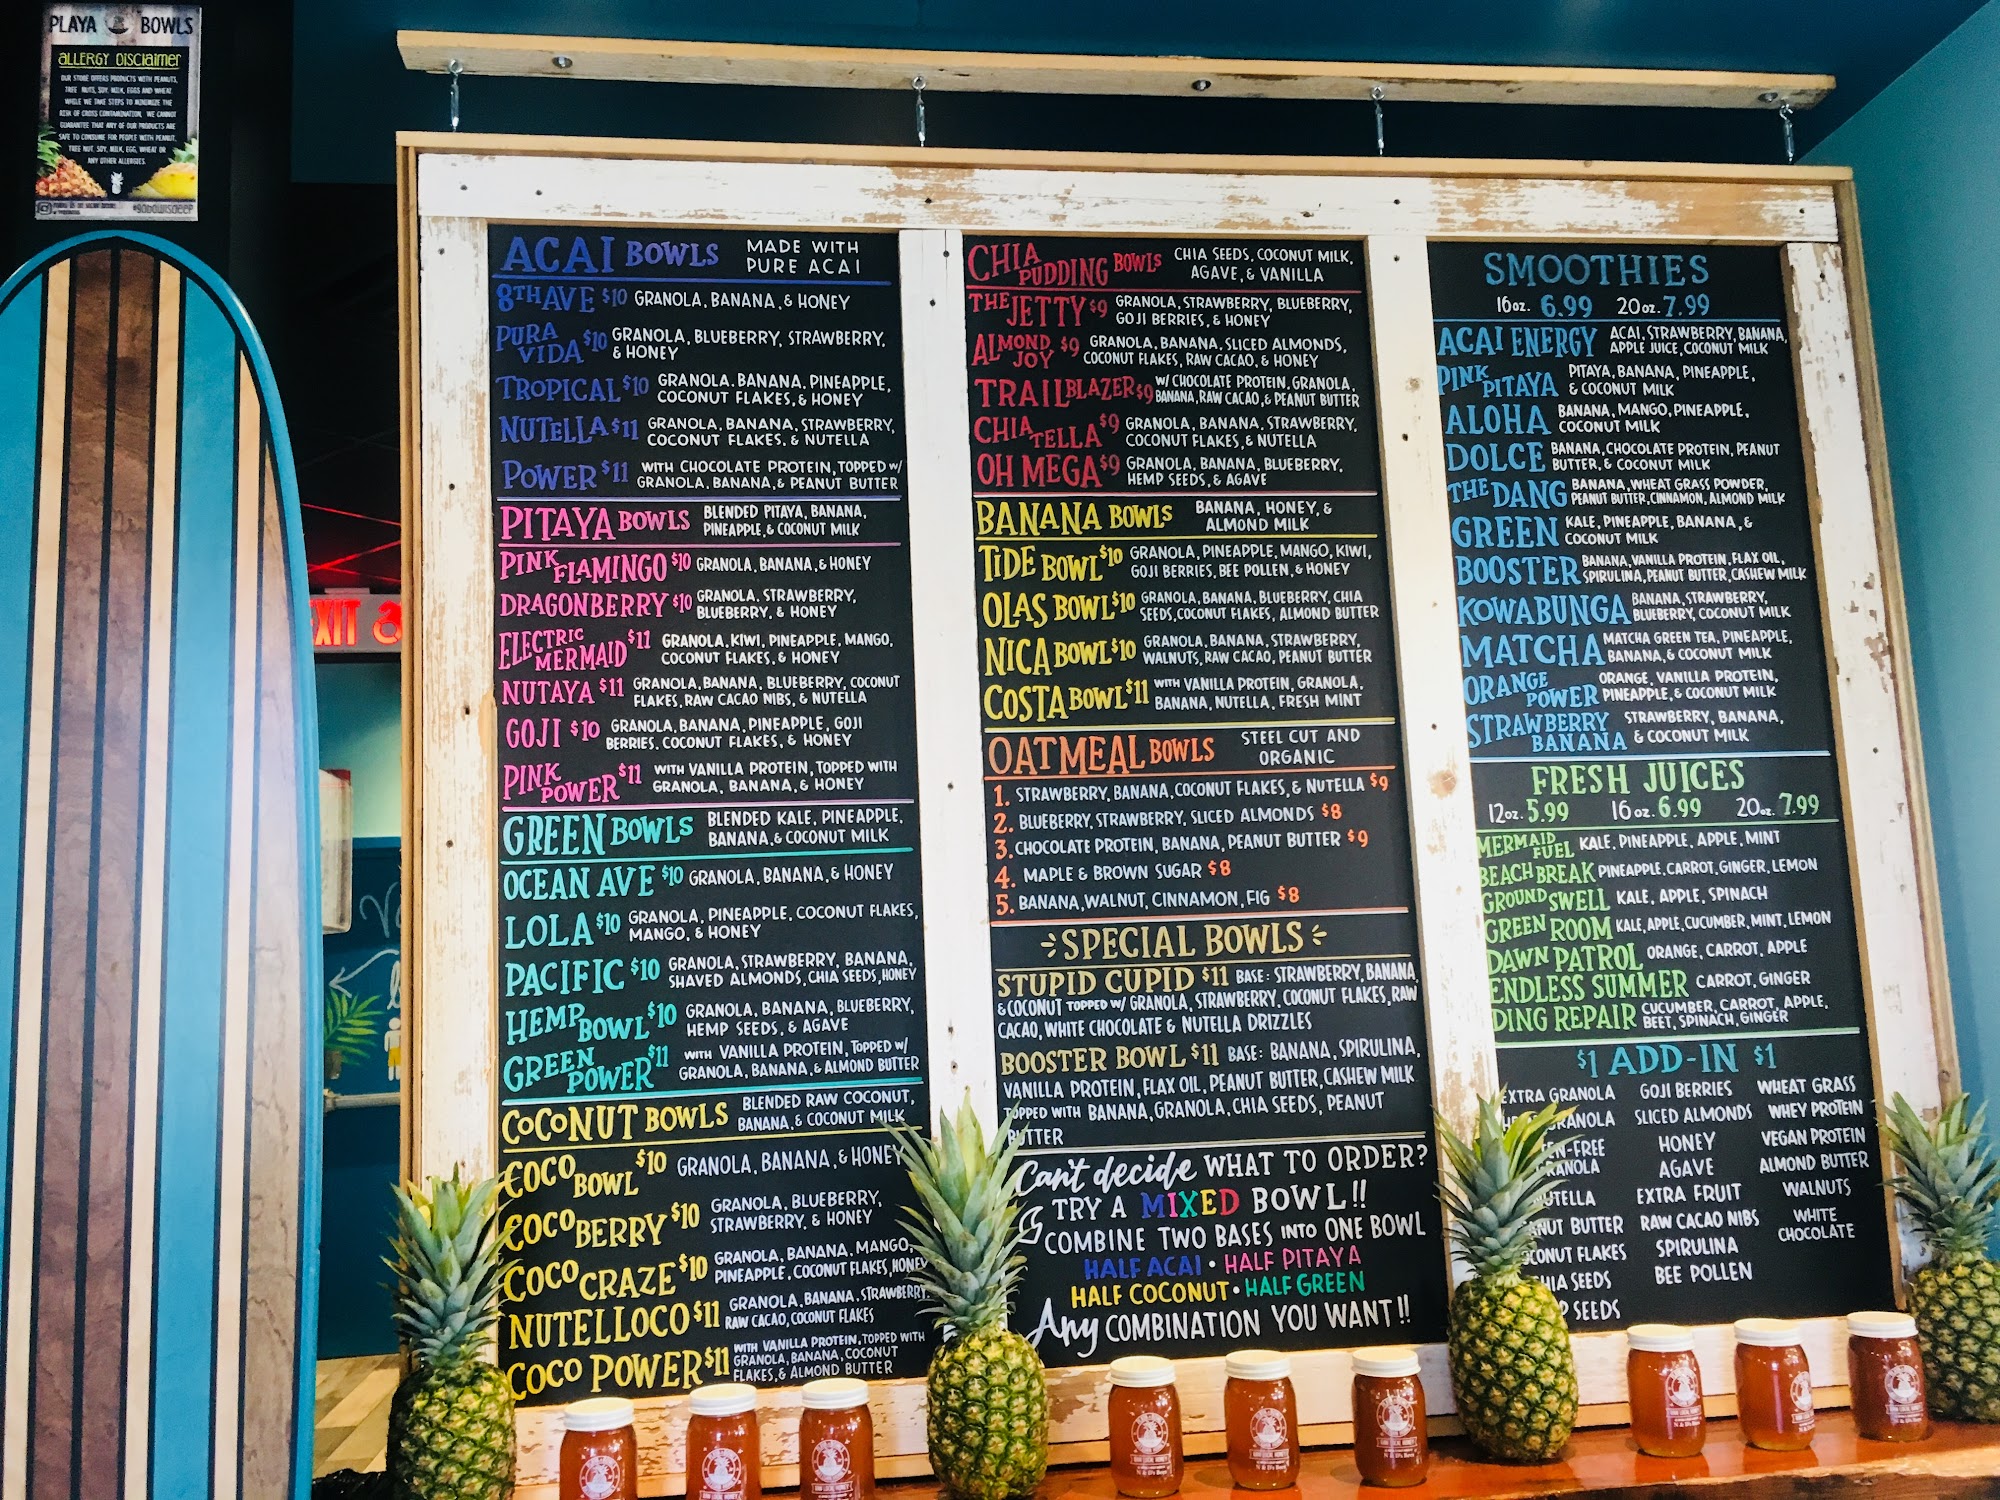 PLAYA BOWLS
ALLERGY DISCLAIMER
OUR STORE OFFERS PRODUCTS WITH PEANUTS,
TREE NUTS, SOY, MILK, EGGS AND WHEAT.
WHILE WE TAKE STEPS TO MINIMIZE THE
RISK OF CROSS CONTAMINATION, WE CANNOT
GUARANTEE THAT ANY OF OUR PRODUCTS ARE
SAFE TO CONSUME FOR PEOPLE WITH PEANUT,
TREE NUT, SOY, MILK, EGG, WHEAT OR
ANY OTHER ALLERGIES.
#GOBOWLSDEEP
EXIT
ACAI BOWLS MADE WITH
PURE ACAI
8TH AVE $10 GRANOLA, BANANA, & HONEY
PURA VIDA $10 GRANOLA, BLUEBERRY, STRAWBERRY,
& HONEY
TROPICAL $10 GRANOLA, BANANA, PINEAPPLE,
COCONUT FLAKES, & HONEY
NUTELLA $11 GRANOLA, BANANA, STRAWBERRY,
COCONUT FLAKES, & NUTELLA
POWER $11 WITH CHOCOLATE PROTEIN, TOPPED W/
GRANOLA, BANANA, & PEANUT BUTTER
PITAYA BOWLS BLENDED PITAYA, BANANA,
PINEAPPLE, & COCONUT MILK
PINK FLAMINGO $10 GRANOLA, BANANA, & HONEY
DRAGONBERRY $10 GRANOLA, STRAWBERRY,
BLUEBERRY, & HONEY
ELECTRIC MERMAID $11 GRANOLA, KIWI, PINEAPPLE, MANGO,
COCONUT FLAKES, & HONEY
NUTAYA $11 GRANOLA, BANANA, BLUEBERRY, COCONUT
FLAKES, RAW CACAO NIBS, & NUTELLA
GOJI $10 GRANOLA, BANANA, PINEAPPLE, GOJI
BERRIES, COCONUT FLAKES, & HONEY
PINK POWER $11 WITH VANILLA PROTEIN, TOPPED WITH
GRANOLA, BANANA, & HONEY
GREEN BOWLS BLENDED KALE, PINEAPPLE,
BANANA, & COCONUT MILK
OCEAN AVE $10 GRANOLA, BANANA, & HONEY
LOLA $10 GRANOLA, PINEAPPLE, COCONUT FLAKES,
MANGO, & HONEY
PACIFIC $10 GRANOLA, STRAWBERRY, BANANA,
SHAVED ALMONDS, CHIA SEEDS, HONEY
HEMP BOWL $10 GRANOLA, BANANA, BLUEBERRY,
HEMP SEEDS, & AGAVE
GREEN POWER $11 WITH VANILLA PROTEIN, TOPPED W/
GRANOLA, BANANA, & ALMOND BUTTER
COCONUT BOWLS BLENDED RAW COCONUT,
BANANA, & COCONUT MILK
COCO BOWL $10 GRANOLA, BANANA, & HONEY
COCO BERRY $10 GRANOLA, BLUEBERRY,
STRAWBERRY, & HONEY
COCO CRAZE $10 GRANOLA, BANANA, MANGO,
PINEAPPLE, COCONUT FLAKES, HONEY
NUTELLOCO $11 GRANOLA, BANANA, STRAWBERRY,
RAW CACAO, COCONUT FLAKES
COCO POWER $11 WITH VANILLA PROTEIN, TOPPED WITH
GRANOLA, BANANA, COCONUT
FLAKES, & ALMOND BUTTER
CHIA PUDDING BOWLS CHIA SEEDS, COCONUT MILK,
AGAVE, & VANILLA
THE JETTY $9 GRANOLA, STRAWBERRY, BLUEBERRY,
GOJI BERRIES, & HONEY
ALMOND JOY $9 GRANOLA, BANANA, SLICED ALMONDS,
COCONUT FLAKES, RAW CACAO, & HONEY
TRAILBLAZER $9 W/ CHOCOLATE PROTEIN, GRANOLA,
BANANA, RAW CACAO, & PEANUT BUTTER
CHIA TELLA $9 GRANOLA, BANANA, STRAWBERRY,
COCONUT FLAKES, & NUTELLA
OH MEGA $9 GRANOLA, BANANA, BLUEBERRY,
HEMP SEEDS, & AGAVE
BANANA BOWLS BANANA, HONEY, &
ALMOND MILK
TIDE BOWL $10 GRANOLA, PINEAPPLE, MANGO, KIWI,
GOJI BERRIES, BEE POLLEN, & HONEY
OLAS BOWL $10 GRANOLA, BANANA, BLUEBERRY, CHIA
SEEDS, COCONUT FLAKES, ALMOND BUTTER
NICA BOWL $10 GRANOLA, BANANA, STRAWBERRY,
WALNUTS, RAW CACAO, PEANUT BUTTER
COSTA BOWL $11 WITH VANILLA PROTEIN, GRANOLA,
BANANA, NUTELLA, FRESH MINT
OATMEAL BOWLS STEEL CUT AND
ORGANIC
1. STRAWBERRY, BANANA, COCONUT FLAKES, & NUTELLA $9
2. BLUEBERRY, STRAWBERRY, SLICED ALMONDS $8
3. CHOCOLATE PROTEIN, BANANA, PEANUT BUTTER $9
4. MAPLE & BROWN SUGAR $8
5. BANANA, WALNUT, CINNAMON, FIG $8
SPECIAL BOWLS
STUPID CUPID $11 BASE: STRAWBERRY, BANANA,
& COCONUT TOPPED W/ GRANOLA, STRAWBERRY, COCONUT FLAKES, RAW
CACAO, WHITE CHOCOLATE & NUTELLA DRIZZLES
BOOSTER BOWL $11 BASE: BANANA, SPIRULINA,
VANILLA PROTEIN, FLAX OIL, PEANUT BUTTER, CASHEW MILK
TOPPED WITH BANANA, GRANOLA, CHIA SEEDS, PEANUT
BUTTER
Can't decide WHAT TO ORDER?
TRY A MIXED BOWL!!
COMBINE TWO BASES INTO ONE BOWL
HALF ACAI • HALF PITAYA
HALF COCONUT • HALF GREEN
Any COMBINATION YOU WANT!!
SMOOTHIES
16oz. 6.99 20oz. 7.99
ACAI ENERGY ACAI, STRAWBERRY, BANANA,
APPLE JUICE, COCONUT MILK
PINK PITAYA PITAYA, BANANA, PINEAPPLE,
& COCONUT MILK
ALOHA BANANA, MANGO, PINEAPPLE,
COCONUT MILK
DOLCE BANANA, CHOCOLATE PROTEIN, PEANUT
BUTTER, & COCONUT MILK
THE DANG BANANA, WHEAT GRASS POWDER,
PEANUT BUTTER, CINNAMON, ALMOND MILK
GREEN KALE, PINEAPPLE, BANANA, &
COCONUT MILK
BOOSTER BANANA, VANILLA PROTEIN, FLAX OIL,
SPIRULINA, PEANUT BUTTER, CASHEW MILK
KOWABUNGA BANANA, STRAWBERRY,
BLUEBERRY, COCONUT MILK
MATCHA MATCHA GREEN TEA, PINEAPPLE,
BANANA, & COCONUT MILK
ORANGE POWER ORANGE, VANILLA PROTEIN,
PINEAPPLE, & COCONUT MILK
STRAWBERRY BANANA STRAWBERRY, BANANA,
& COCONUT MILK
FRESH JUICES
12oz. 5.99 16oz. 6.99 20oz. 7.99
MERMAID FUEL KALE, PINEAPPLE, APPLE, MINT
BEACH BREAK PINEAPPLE, CARROT, GINGER, LEMON
GROUND SWELL KALE, APPLE, SPINACH
GREEN ROOM KALE, APPLE, CUCUMBER, MINT, LEMON
DAWN PATROL ORANGE, CARROT, APPLE
ENDLESS SUMMER CARROT, GINGER
DING REPAIR CUCUMBER, CARROT, APPLE,
BEET, SPINACH, GINGER
$1 ADD-IN $1
EXTRA GRANOLA GOJI BERRIES WHEAT GRASS
GRANOLA SLICED ALMONDS WHEY PROTEIN
EN-FREE GRANOLA HONEY VEGAN PROTEIN
AGAVE ALMOND BUTTER
NUTELLA EXTRA FRUIT WALNUTS
PEANUT BUTTER RAW CACAO NIBS WHITE CHOCOLATE
COCONUT FLAKES SPIRULINA
CHIA SEEDS BEE POLLEN
SEEDS